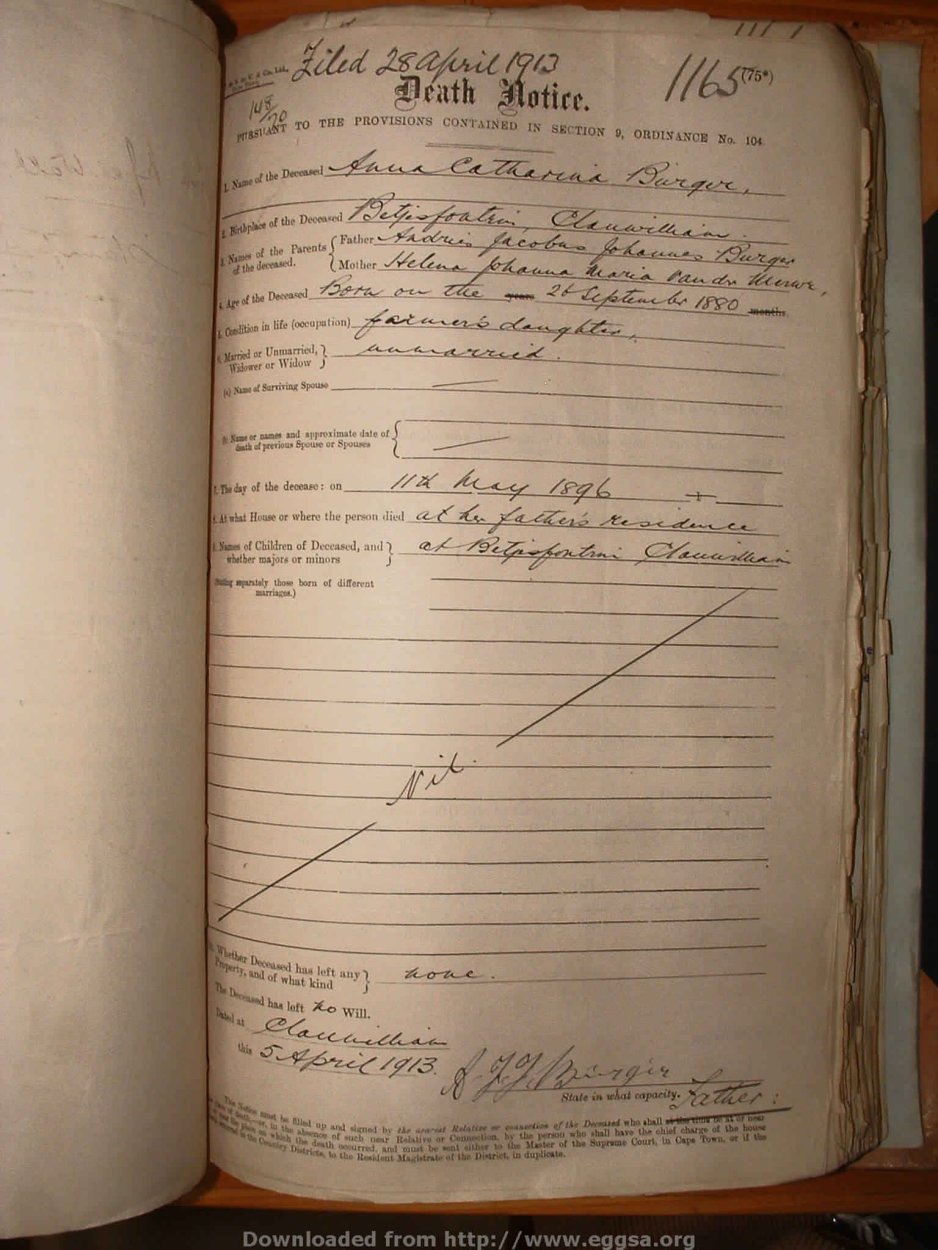 Filed 28 April 1913
Death Notice.
1165 (75*)
148/70
PURSUANT TO THE PROVISIONS CONTAINED IN SECTION 9, ORDINANCE No. 104
1. Name of the Deceased Anna Catharina Burger,
2. Birthplace of the Deceased Betjesfontein, Clanwilliam.
3. Names of the Parents of the deceased. Father Andries Jacobus Johannes Burger
Mother Helena Johanna Maria van der Merwe,
4. Age of the Deceased Born on the years 26 September 1880 months
5. Condition in life (occupation) farmer's daughter,
6. Married or Unmarried, Widower or Widow unmarried.
(a) Name of Surviving Spouse —
(b) Name or names and approximate date of
death of previous Spouse or Spouses —
7. The day of the decease: on 11th May 1896
8. At what House or where the person died at her father's residence
9. Names of Children of Deceased, and at Betjesfontein Clanwilliam
whether majors or minors
(Stating separately those born of different
marriages.)
Nil
Whether Deceased has left any
Property, and of what kind none.
The Deceased has left no Will.
Dated at Clanwilliam
this 5 April 1913.
A J J Burger
State in what capacity. Father:
The Notice must be filled up and signed by the nearest Relative or connection of the Deceased who shall at the time be at or near
place of death,—or, in the absence of such near Relative or Connection, by the person who shall have the chief charge of the house
or the place on which the death occurred, and must be sent either to the Master of the Supreme Court, in Cape Town, or if the
occurred in the Country Districts, to the Resident Magistrate of the District, in duplicate.
Downloaded from http://www.eggsa.org